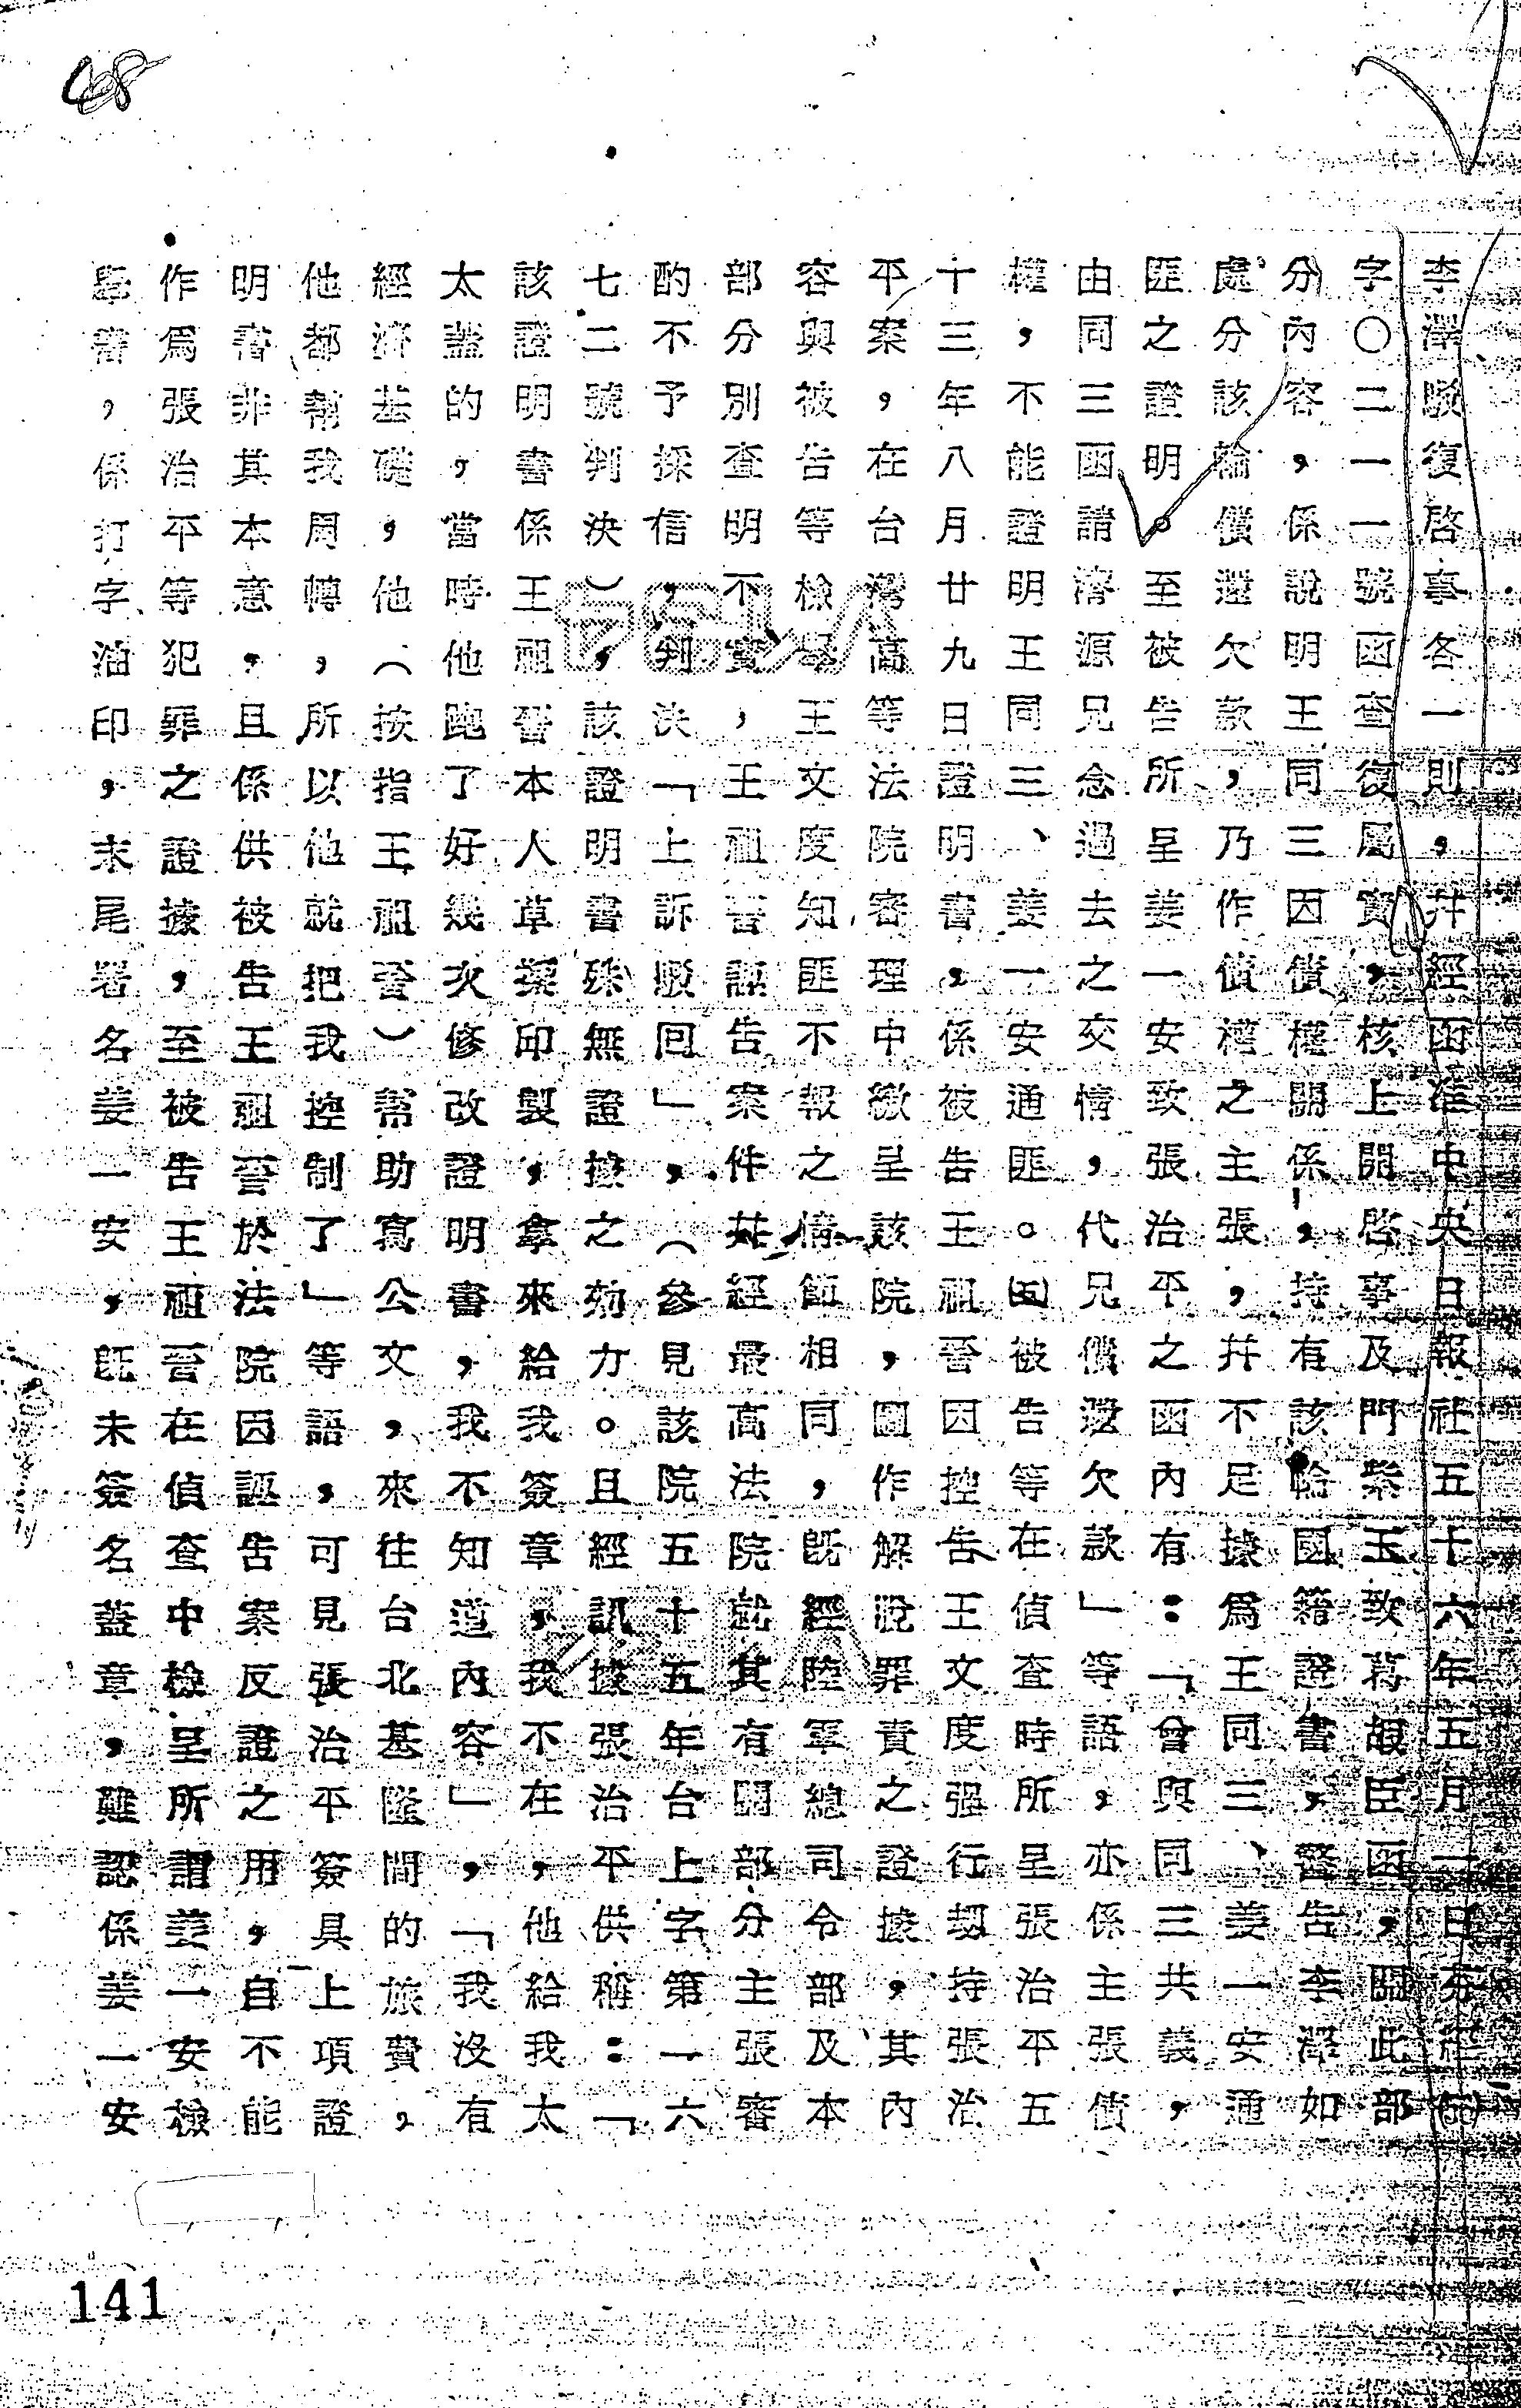 李澤駿復啓事各一則，幷經函准中央日報社五十六年五月一日
字〇二一一號函查復屬實，核上開啓事及門業玉致蔣臣函，關此部
分內容，係說明王同三因債權關係，持有該輪國籍證書，警告李澤如
處分該輪。償還欠款，乃作債權之主張，幷不足據爲王同三、姜一安通
匪之證明。至被告所呈姜一安致張治平之函內有：「曾與同三共義，
由同三函請溶源兄念過去之交情，代兄償還欠款」等語，亦係主張債
權，不能證明王同三、姜一安通匪。因被告等在偵查時所呈張治平五
十三年八月廿九日證明書，係被告王祖晉因控告王文度强行刼持張治
平案，在台灣高等法院審理中繳呈該院，圖作解脫罪責之證據，其內
容與被告等檢王文度知匪不報之情節相同，既經陸軍總司令部及本
部分別查明不實，王祖晉誣告案件幷經最高法院就其有關部分主張審
酌不予採信，判決「上訴駁回」，（參見該院五十五年台上字第一六
七二號判決），該證明書殊無證據之効力。且經訊據張治平供稱：「
該證明書係王祖晉本人草擬印製，拿來給我簽章，我不在，他給我太
太蓋的，當時他跑了好幾次修改證明書，我不知道內容」，「我沒有
經濟基礎，他（按指王祖晉）幫助寫公文，來往台北基隆間的旅費，
他都幫我周轉，所以他就把我控制了」等語，可見張治平簽具上項證
明書非其本意，且係供被告王祖晉於法院因誣告案反證之用，自不能
作爲張治平等犯罪之證據，至被告王祖晉在偵查中檢呈所謂姜一安檢
舉書，係打字油印，末尾署名姜一安，既未簽名蓋章，難認係姜一安
141